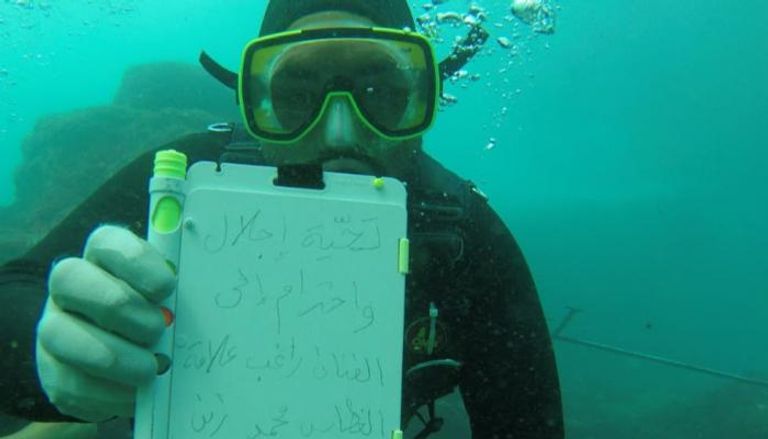 تَحيَّة إجلال
واحترام إلى
الفنان راغب علامة
الغطاس محمد